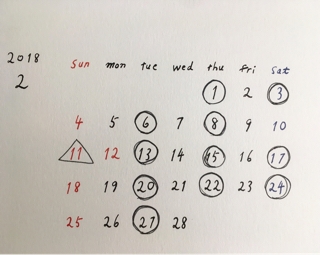 2018
2
Sun mon tue wed thu fri sat
1 2 3
4 5 6 7 8 9 10
11 12 13 14 15 16 17
18 19 20 21 22 23 24
25 26 27 28